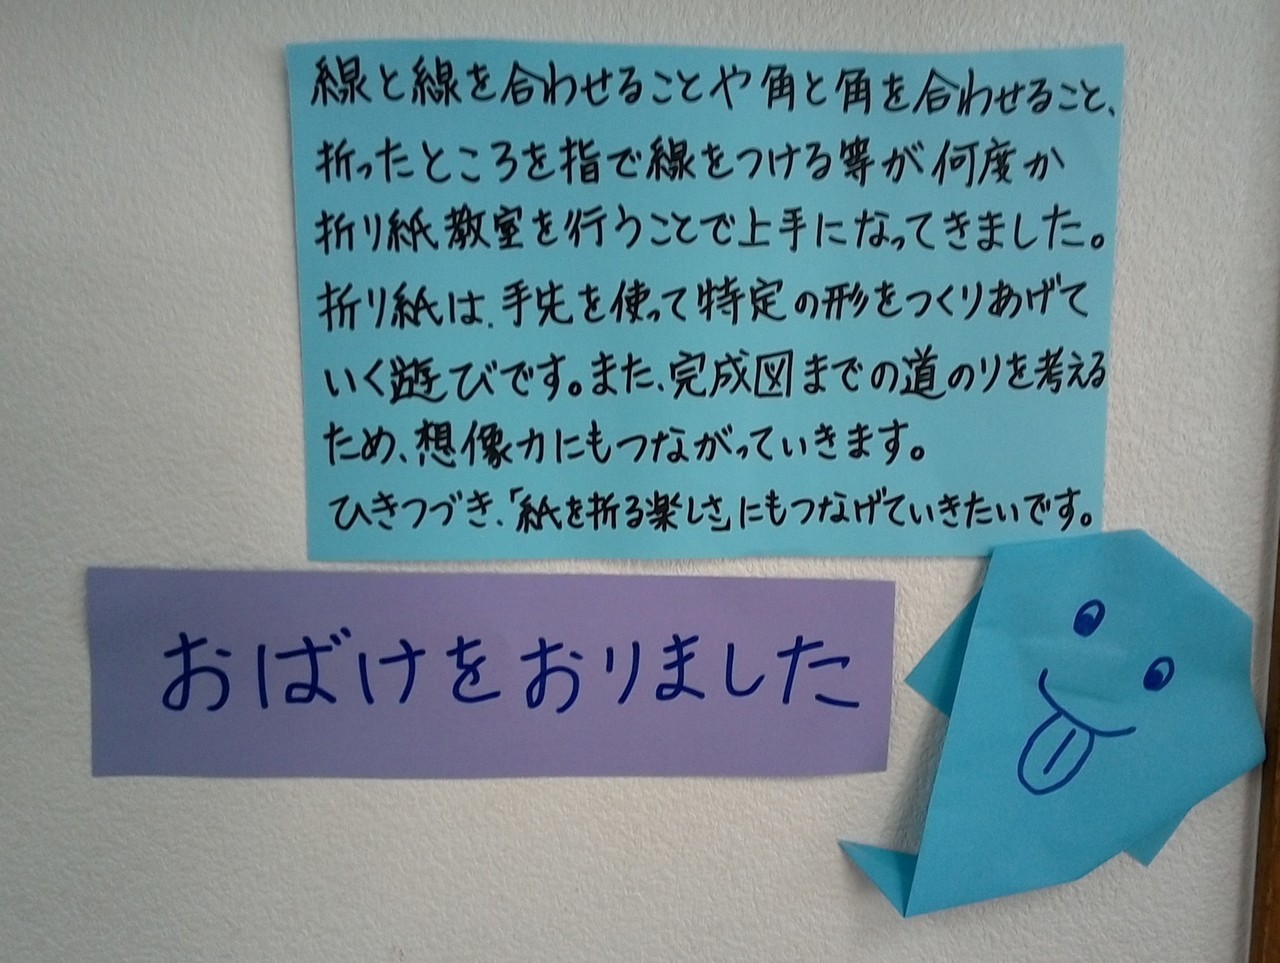 線と線を合わせることや角と角を合わせること、
折ったところを指で線をつける等が何度か
折り紙教室を行うことで上手になってきました。
折り紙は、手先を使って特定の形をつくりあげて
いく遊びです。また、完成図までの道のりを考える
ため、想像力にもつながっていきます。
ひきつづき、「紙を折る楽しさ」にもつなげていきたいです。
おばけをおりました